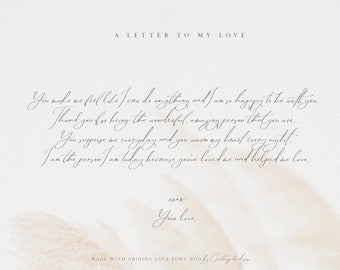 A LETTER TO MY LOVE
You make me feel like I can do anything and I am so happy to be with you.
Thank you for being the wonderful, amazing person that you are.
You surprise me everyday and you warm my heart every night.
I am the person I am today because you've loved me and helped me love.
xoxo
Your love,
MADE WITH ABIDING LOVE FONT DUO by